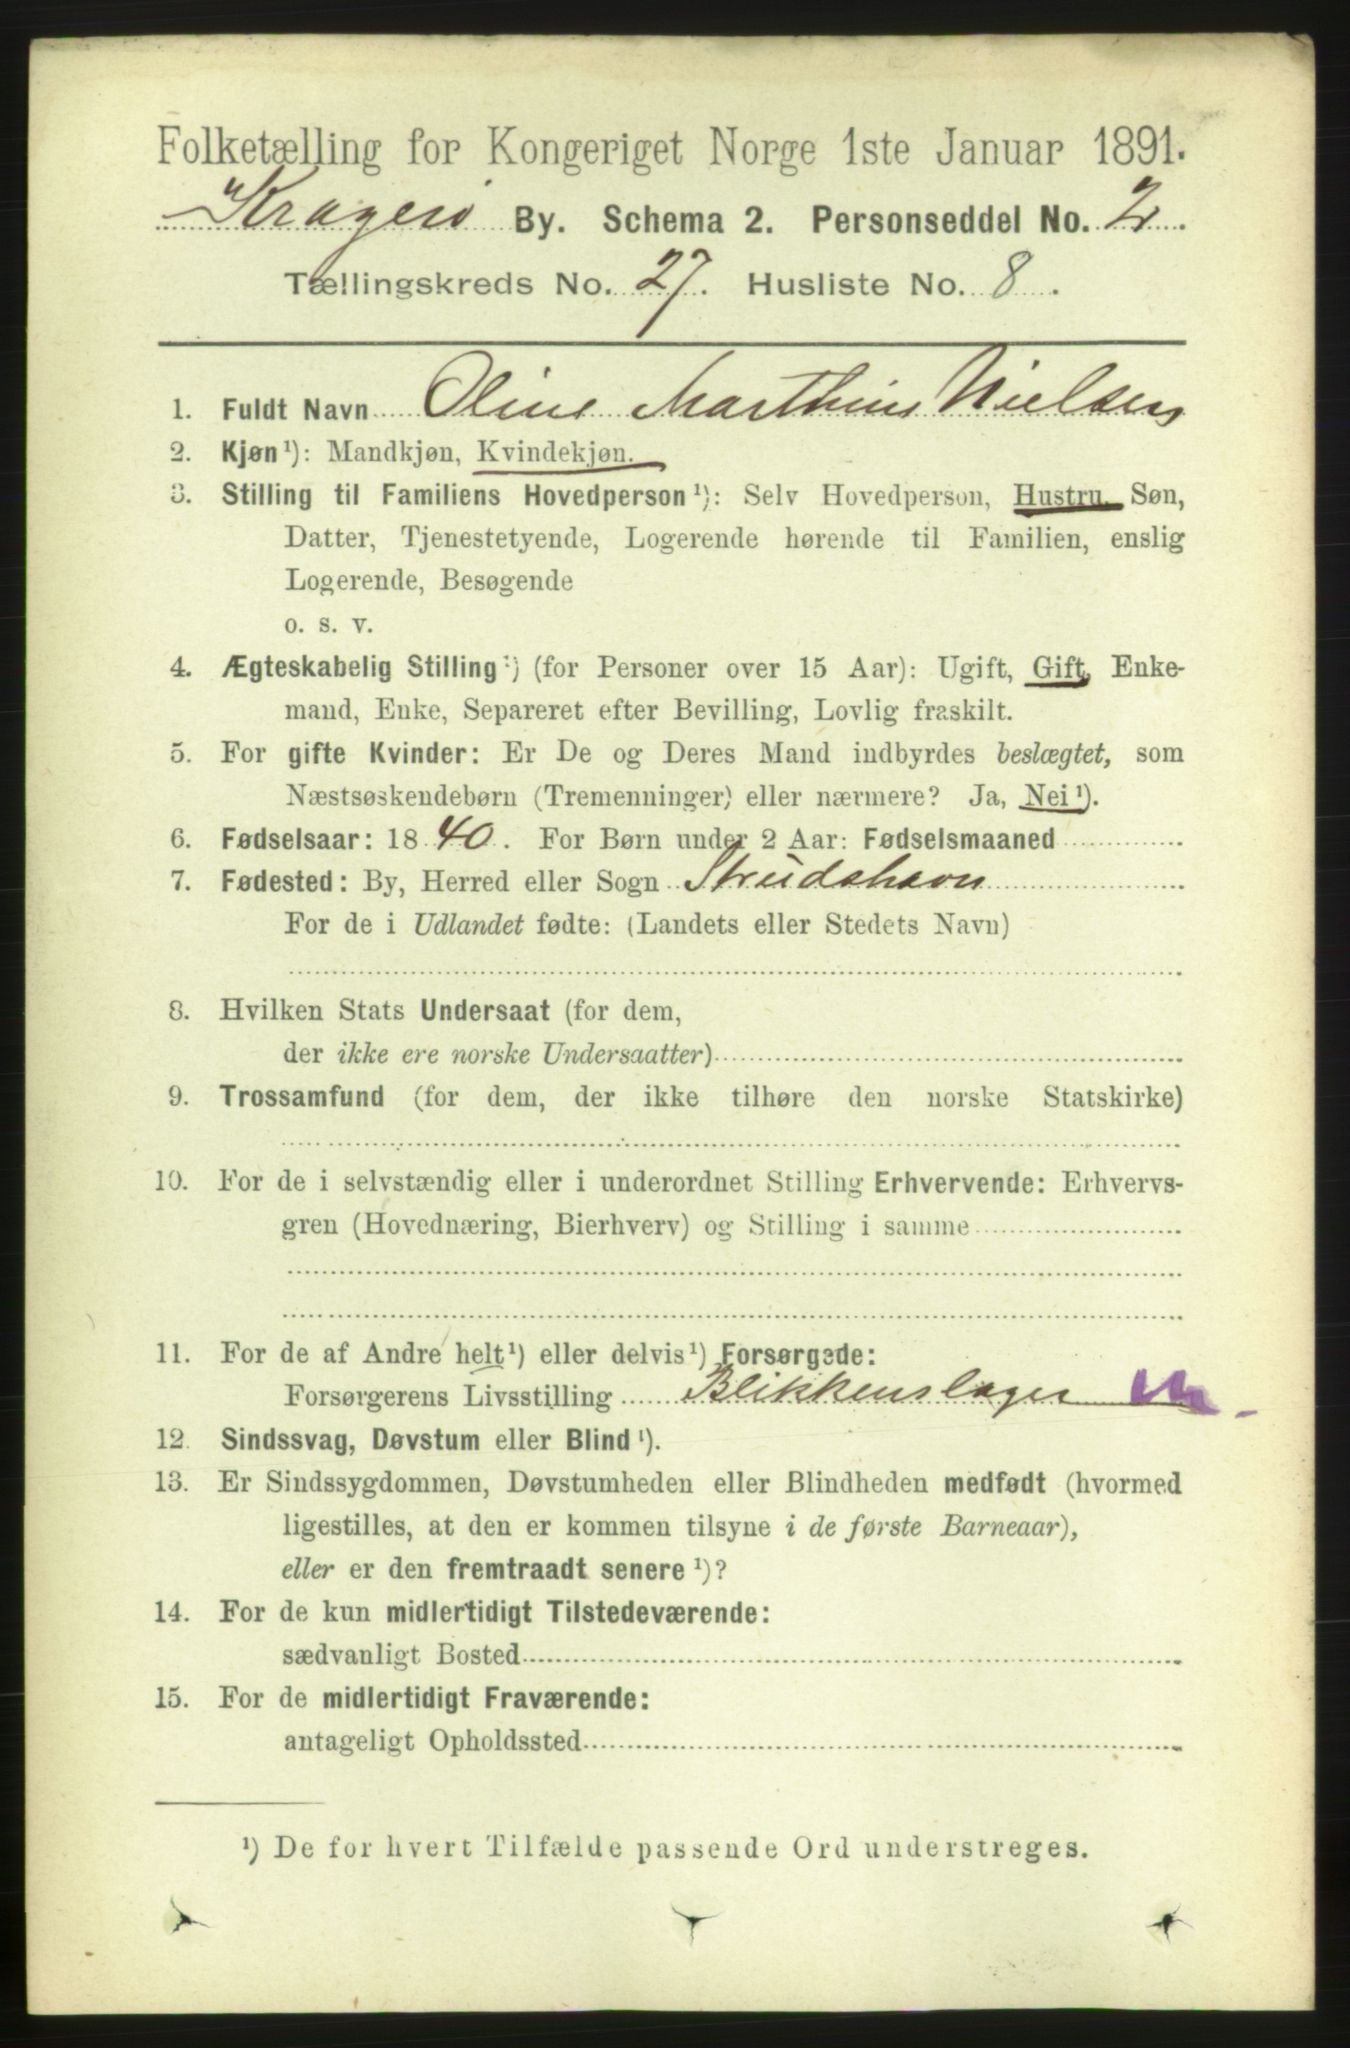 Folketælling for Kongeriget Norge 1ste Januar 1891.
Kragerø By. Schema 2. Personseddel No. 2.
Tællingskreds No. 27. Husliste No. 8.
1. Fuldt Navn Oline Marthine Nielsen
2. Kjøn ¹): Mandkjøn, Kvindekjøn.
3. Stilling til Familiens Hovedperson ¹): Selv Hovedperson, Hustru, Søn,
Datter, Tjenestetyende, Logerende hørende til Familien, enslig
Logerende, Besøgende
o. s. v.
4. Ægteskabelig Stilling ¹) (for Personer over 15 Aar): Ugift, Gift, Enke-
mand, Enke, Separeret efter Bevilling, Lovlig fraskilt.
5. For gifte Kvinder: Er De og Deres Mand indbyrdes beslægtet, som
Næstsøskendebørn (Tremenninger) eller nærmere? Ja, Nei ¹).
6. Fødselsaar: 1840. For Børn under 2 Aar: Fødselsmaaned
7. Fødested: By, Herred eller Sogn Strudshavn
For de i Udlandet fødte: (Landets eller Stedets Navn)
8. Hvilken Stats Undersaat (for dem,
der ikke ere norske Undersaatter)
9. Trossamfund (for dem, der ikke tilhøre den norske Statskirke)
10. For de i selvstændig eller i underordnet Stilling Erhvervende: Erhvervs-
gren (Hovednæring, Bierhverv) og Stilling i samme
11. For de af Andre helt ¹) eller delvis ¹) Forsørgede:
Forsørgerens Livsstilling Blikkenslager
12. Sindssvag, Døvstum eller Blind ¹).
13. Er Sindssygdommen, Døvstumheden eller Blindheden medfødt (hvormed
ligestilles, at den er kommen tilsyne i de første Barneaar),
eller er den fremtraadt senere ¹)?
14. For de kun midlertidigt Tilstedeværende:
sædvanligt Bosted
15. For de midlertidigt Fraværende:
antageligt Opholdssted
¹) De for hvert Tilfælde passende Ord understreges.